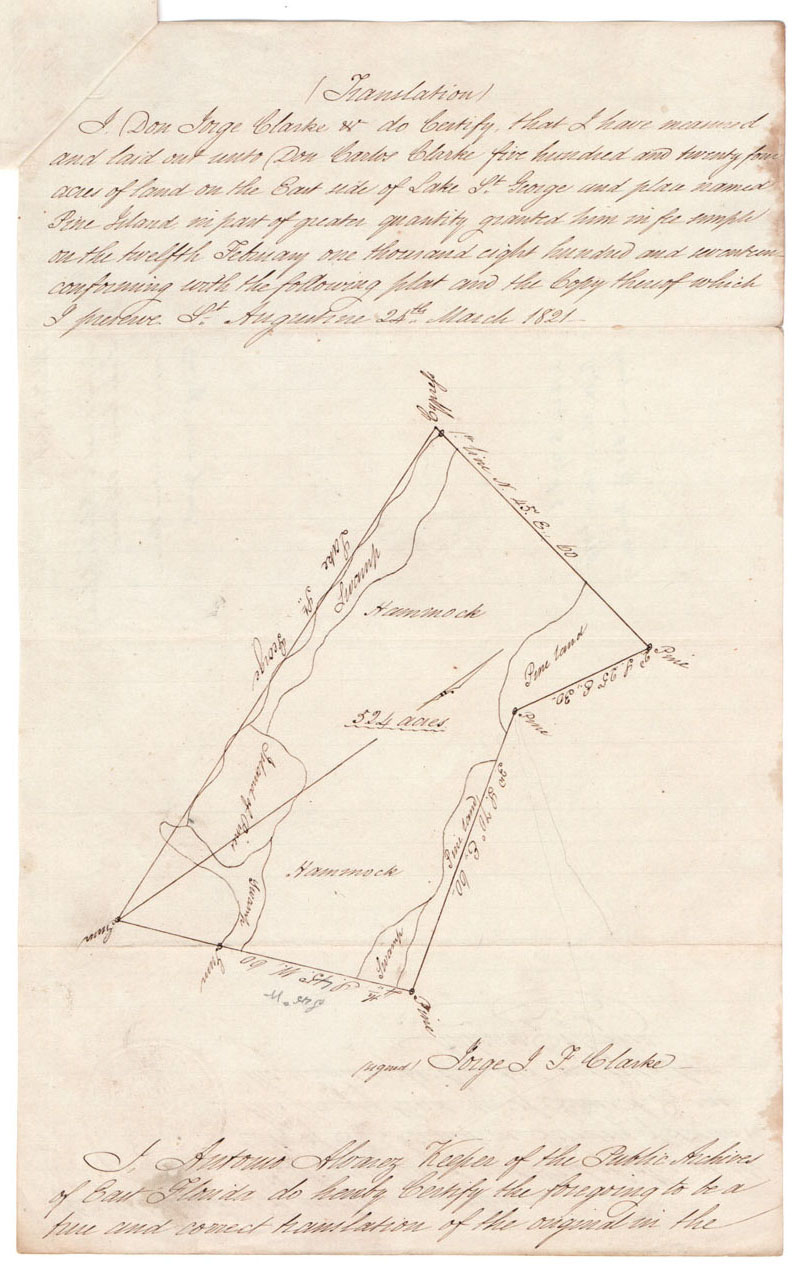 (Translation)
I. Don Jorge Clarke &c do Certify, that I have measured
and laid out unto Don Carlos Clarke five hundred and twenty four
acres of land on the East side of Lake St. George and place named
Pine Island in part of greater quantity granted him in fee simple
on the twelfth February one thousand eight hundred and seventeen
conforming with the following plat and the Copy thereof which
I preserve. St. Augustine 24th March 1821
Cypress
1st line N. 45. E. 60
Lake St. George
Swamp
Hammock
Pine land
Pine
2d S. 95 E. 30.
Pine
524 acres
Island of Pines
3d S. 40° E. 60
Pine land
Hammock
Swamp
Gum
Gum
Swamp
4th S 45° W. 60
S 45° W
Pine
(signed) Jorge J. F. Clarke
I. Antonio Alvarez Keeper of the Public Archives
of East Florida do hereby Certify the foregoing to be a
true and correct translation of the original in the